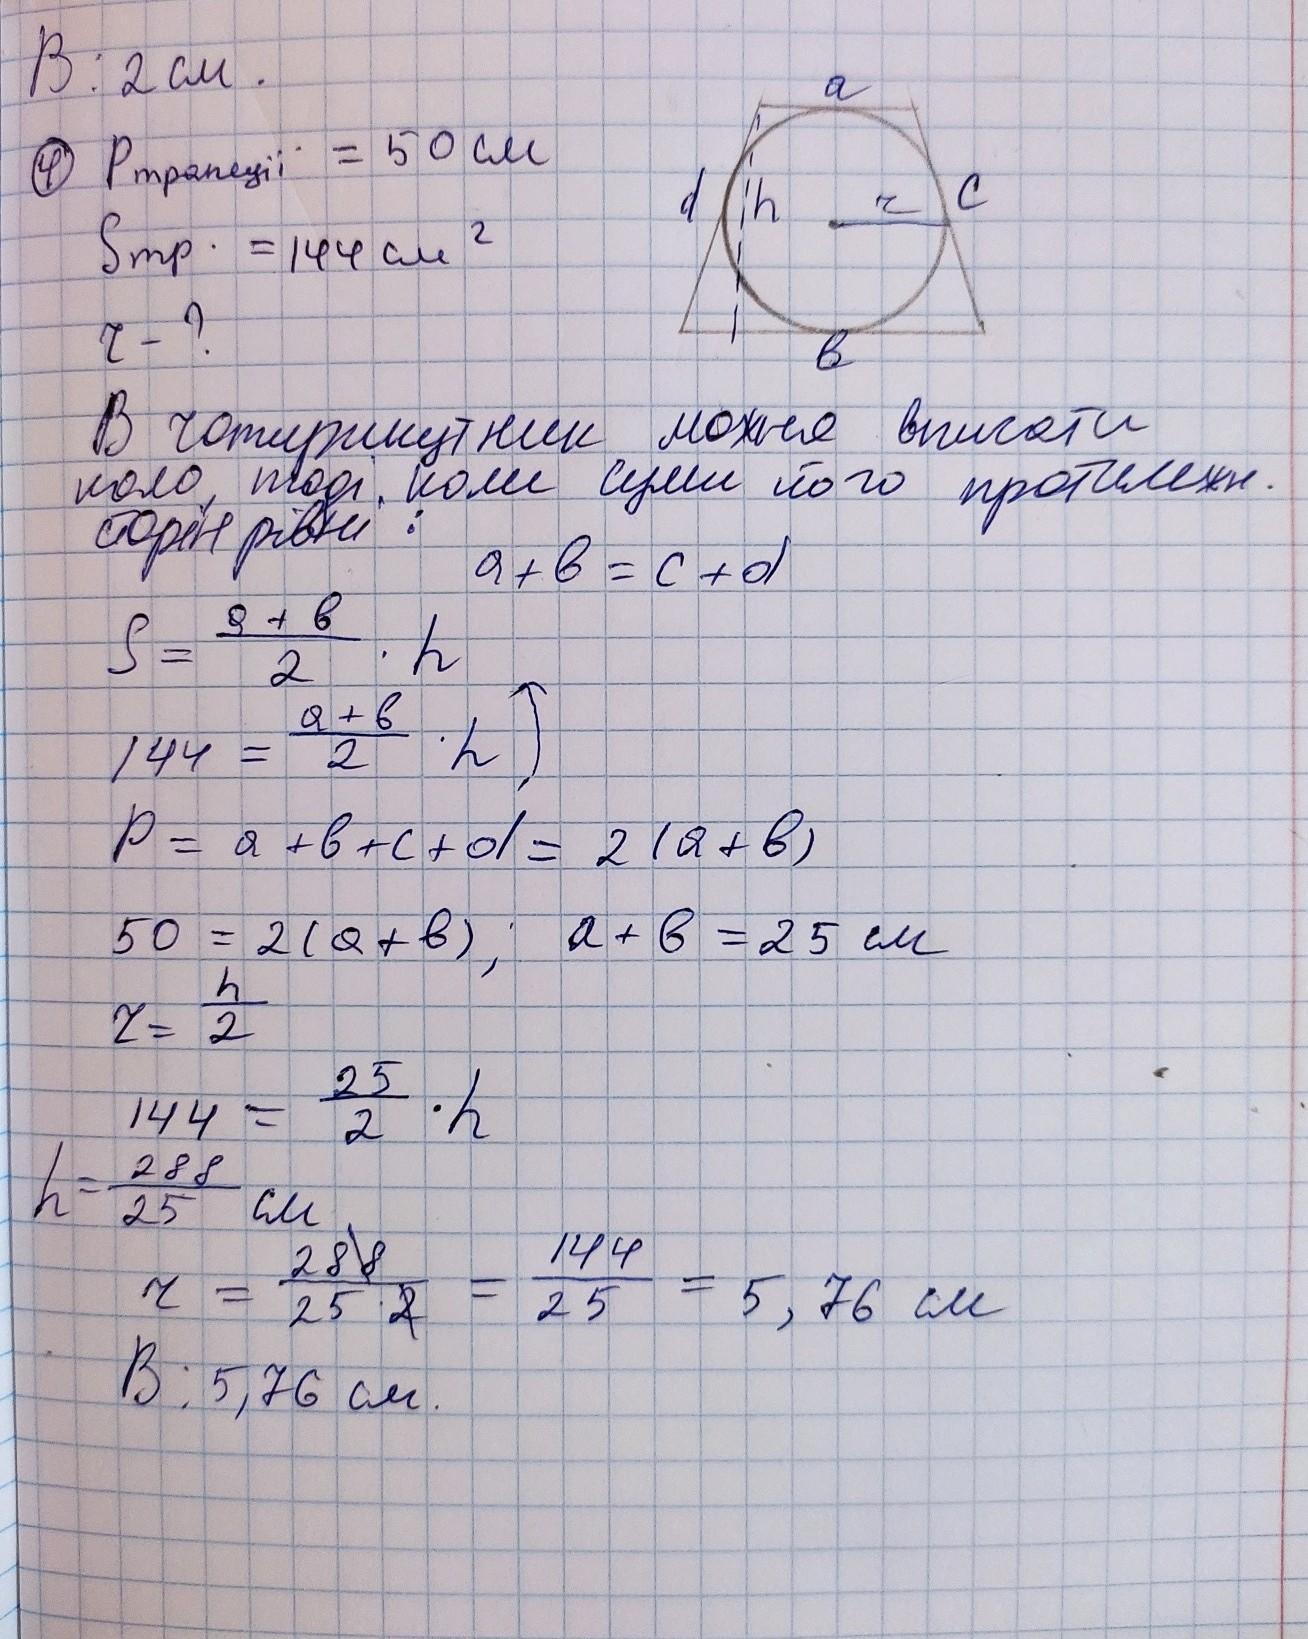 В: 2 см.
④ Pтрапеції = 50 см
Sтр. = 144 см²
r - ?
a
d h r c
в
В чотирикутник можна вписати
коло, тоді, коли суми його протилежн.
сторін рівні:
a + в = c + d
S = (a + в)/2 · h
144 = (a + в)/2 · h
P = a + в + c + d = 2(a + в)
50 = 2(a + в); a + в = 25 см
r = h/2
144 = 25/2 · h
h = 288/25 см
r = 288/(25 · 2) = 144/25 = 5,76 см
В: 5,76 см.